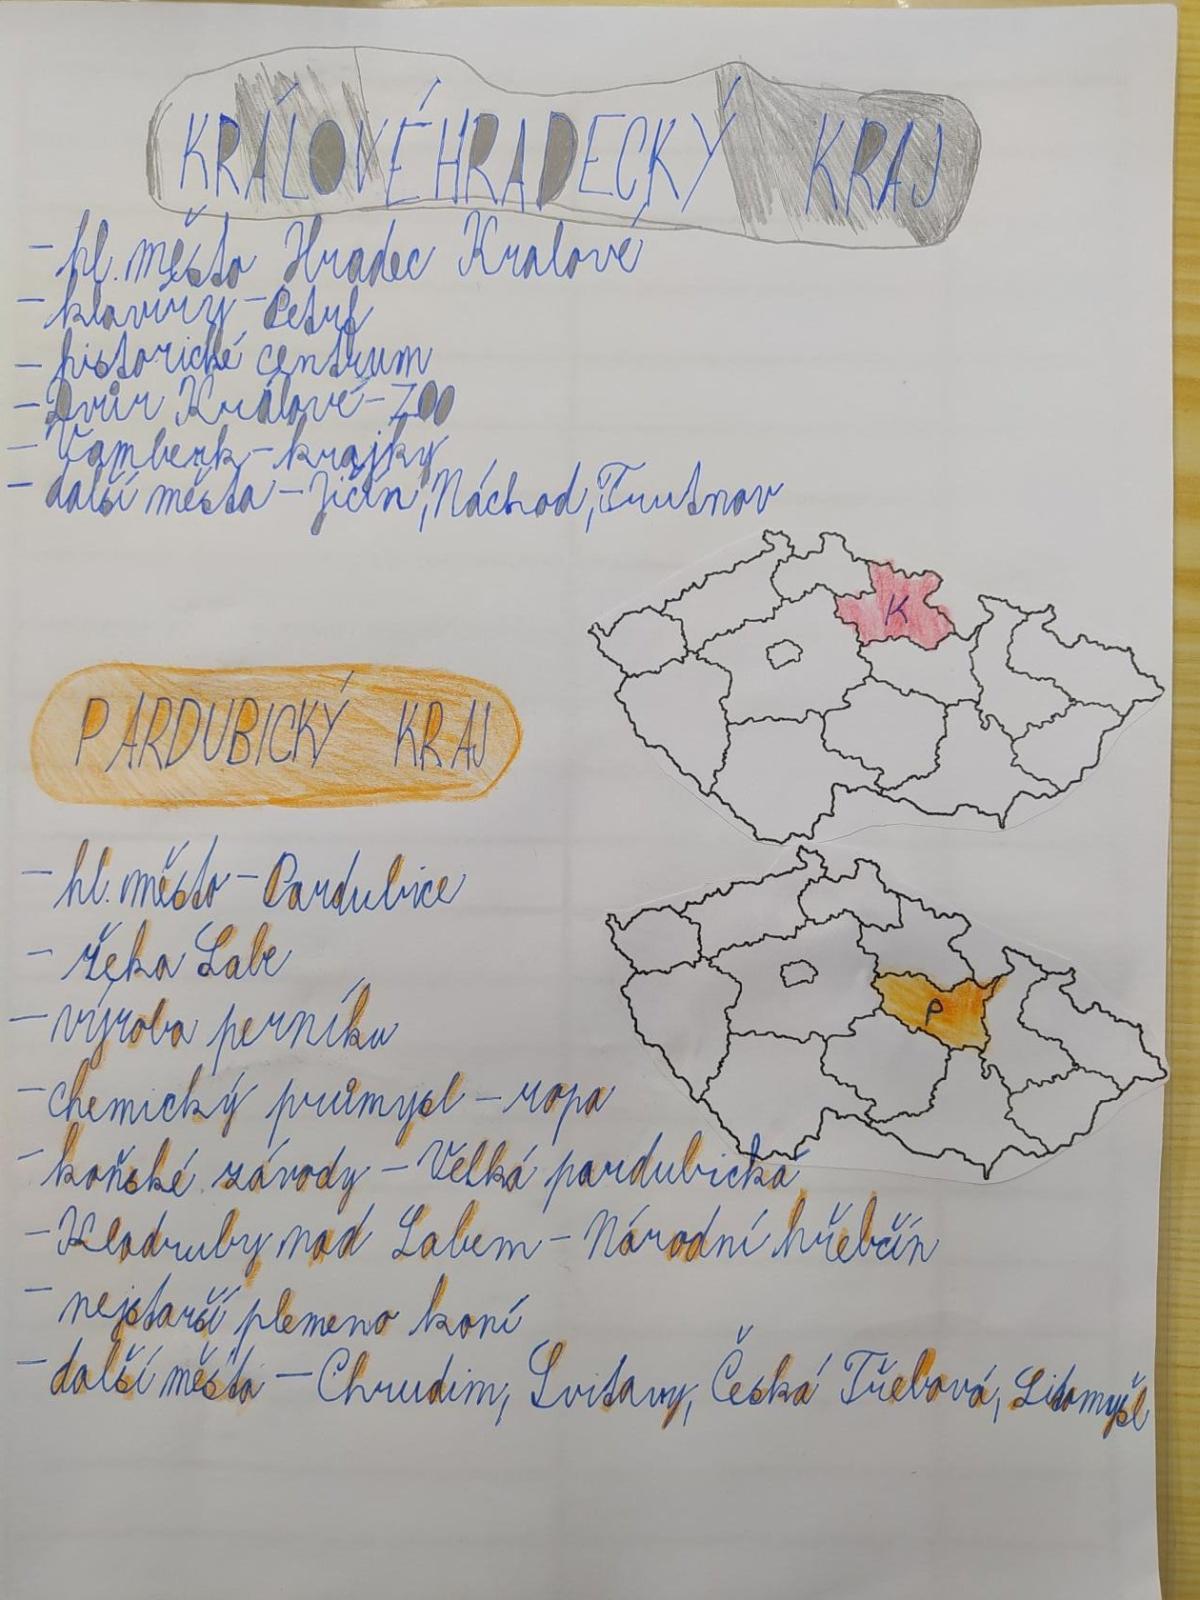 KRÁLOVÉHRADECKÝ KRAJ
- hl. město Hradec Kralové
- klavíry - Petrf
- historické centrum
- Dvůr Králové - ZOO
- Vamberk - krajky
- další města - Jičín, Náchod, Trutnov
K
PARDUBICKÝ KRAJ
- hl. město - Pardubice
- řeka Labe
- výroba perníku
P
- chemický průmysl - ropa
- koňské závody - Velká pardubická
- Kladruby nad Labem - Národní hřebčín
- nejstarší plemeno koní
- další města - Chrudim, Svitavy, Česká Třebová, Litomyšl